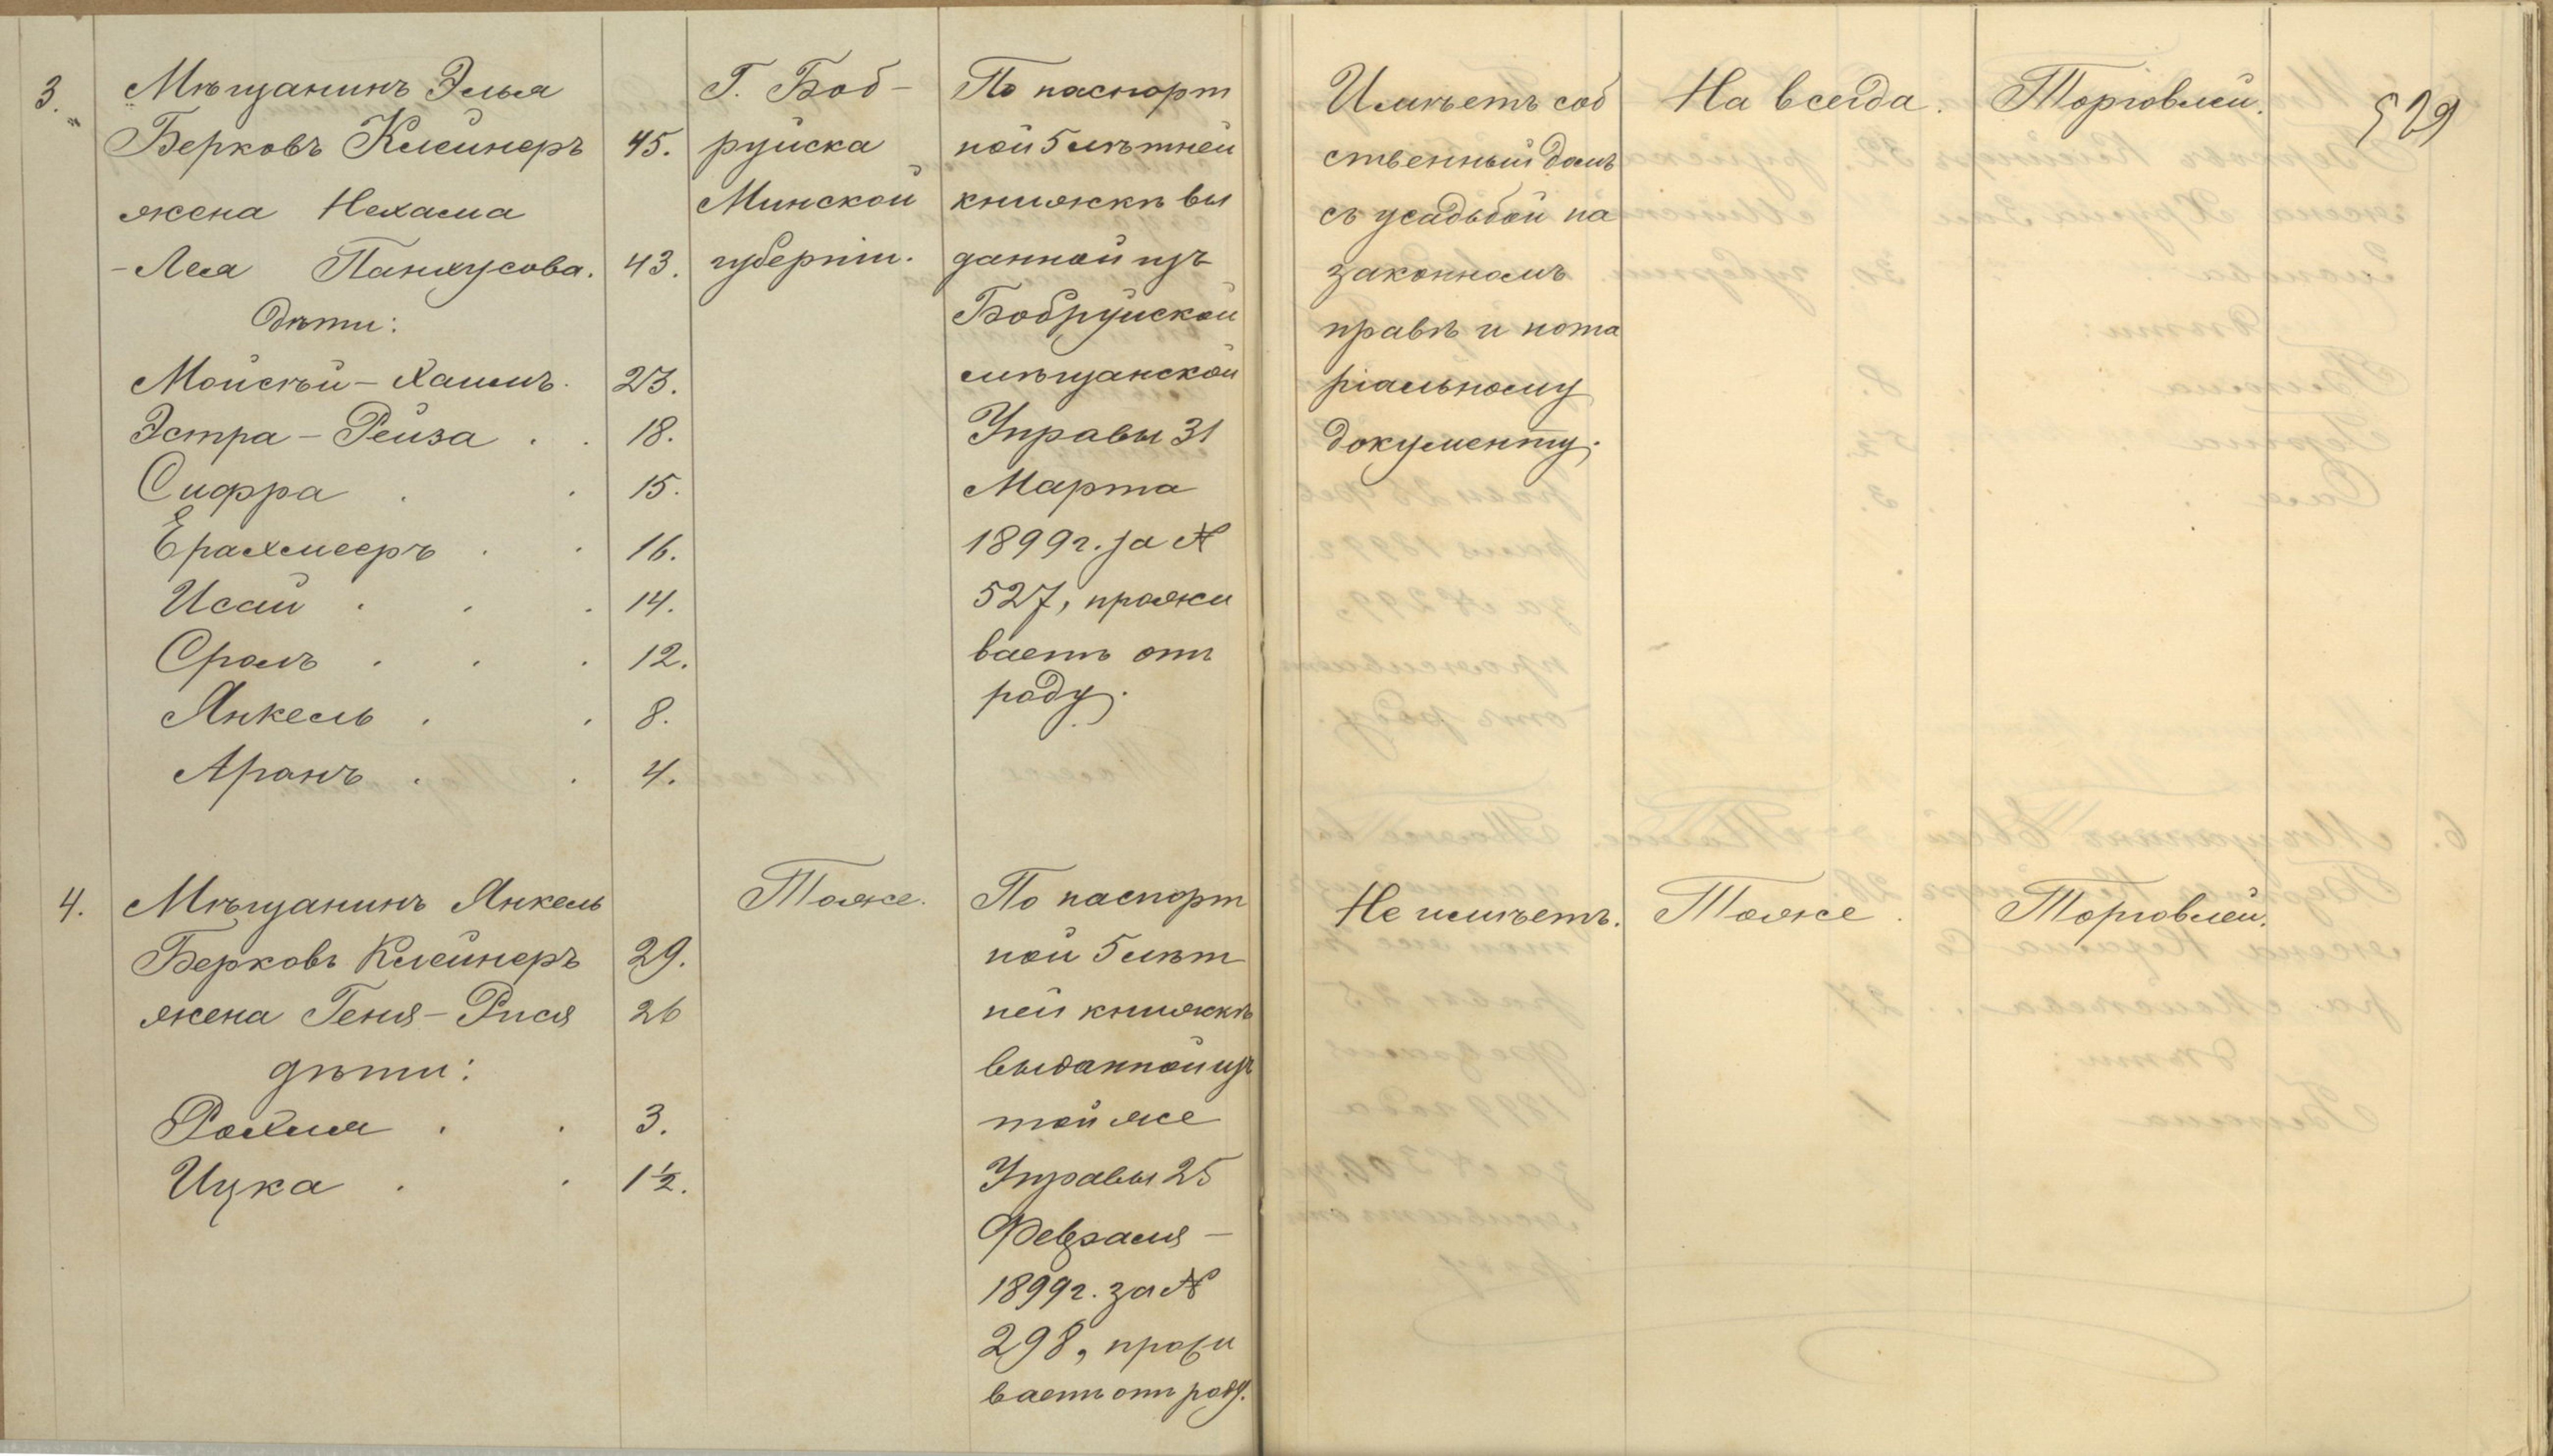 3. Мѣщанинъ Элья
Берковъ Клейнеръ 45.
жена Нехама
-Лея Панхусова. 43.
Дѣти:
Мойсѣй-Хаимъ. 23.
Эстра-Рейза . . 18.
Сифра . . 15.
Ерахмееръ . . 16.
Исай . . . 14.
Сроль . . . 12.
Янкель . . 8.
Аронъ . . 4.
Г. Боб-
руйска
Минской
губерніи.
По паспорт
ной 5 лѣтней
книжкѣ вы
данной изъ
Бобруйской
мѣщанской
Управы 31
Марта
1899 г. за №
527, прожи
ваетъ отъ
роду.
Имѣетъ соб
ственный домъ
съ усадьбой на
законномъ
правѣ и нота
ріальному
документу.
На всегда.
Торговлей.
529
4. Мѣщанинъ Янкель
Берковъ Клейнеръ 29.
жена Геня-Рися 26
дѣти:
Рохля . . 3.
Ицка . . 1½.
Тоже.
По паспорт
ной 5 лѣт
ней книжкѣ
выданной изъ
той же
Управы 25
Февраля -
1899 г. за №
298, прожи
ваетъ отъ роду.
Не имѣетъ.
Тоже.
Торговлей.